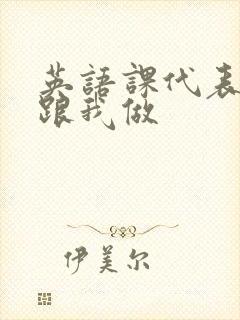 英語課代表
跟我做
伊美尔